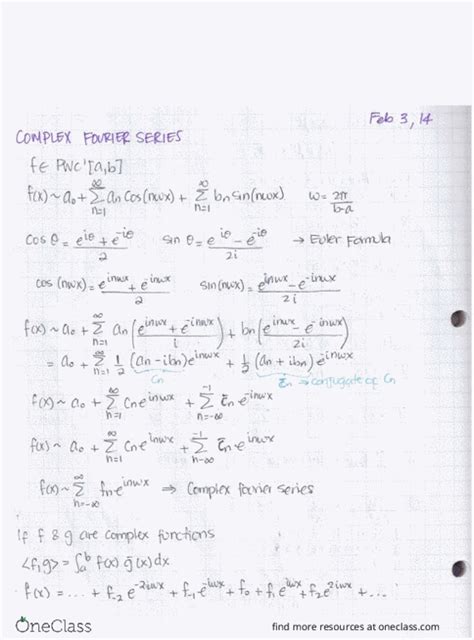 Feb 3, 14
COMPLEX FOURIER SERIES
f ∈ PWC'[a,b]
f(x) ~ a₀ + ∑_{n=1}^{∞} an cos(nωx) + ∑_{n=1}^{∞} bn sin(nωx)   ω = 2π/(b-a)
cos θ = (e^{iθ} + e^{-iθ})/2   sin θ = (e^{iθ} - e^{-iθ})/2i → Euler Formula
cos(nωx) = (e^{inωx} + e^{-inωx})/2   sin(nωx) = (e^{inωx} - e^{-inωx})/2i
f(x) ~ a₀ + ∑_{n=1}^{∞} an((e^{inωx} + e^{-inωx})/i) + bn((e^{inωx} - e^{-inωx})/2i)
= a₀ + ∑_{n=1}^{∞} 1/2 (an - ibn)e^{inωx} + 1/2 (an + ibn)e^{inωx}
Cn   c̄n → conjugate of Cn
f(x) ~ a₀ + ∑_{n=1}^{∞} Cn e^{inωx} + ∑_{n=-∞}^{-1} c̄n e^{-inωx}
f(x) ~ a₀ + ∑_{n=1}^{∞} Cn e^{inωx} + ∑_{n=-∞}^{-1} c̄n e^{inωx}
f(x) ~ ∑_{n=-∞}^{∞} fn e^{inωx} ⇒ Complex fourier series
If f & g are complex functions
⟨f,g⟩ = ∫_a^b f(x) ḡ(x) dx
f(x) = ... + f₋₂ e^{-2iωx} + f₋₁ e^{-iωx} + f₀ + f₁ e^{iωx} + f₂ e^{2iωx} + ...
OneClass
find more resources at oneclass.com